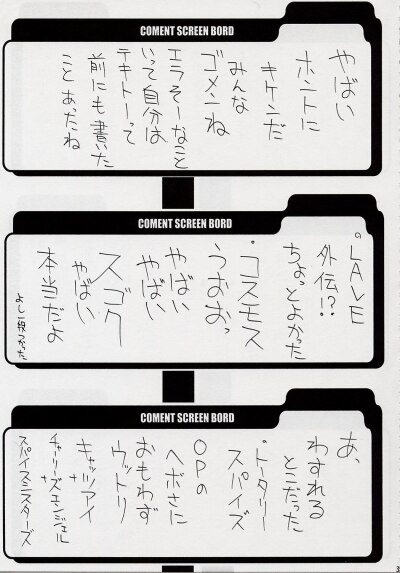 COMENT SCREEN BORD
やばい
ホントに
キケンだ
みんな
ゴメンね
エラそーなこと
いって自分は
テキトーって
前にも書いた
ことあったね
COMENT SCREEN BORD
。LAVE
外伝!?
ちょっとよかった
・コスモス
うおおっ
やばい
やばい
スゴク
やばい
本当だよ
COMENT SCREEN BORD
あ、
わすれる
とこだった
・トータリー
スパイズ
OPの
ヘボさに
おもわず
ウットリ
キャッツアイ
+
チャーリーズエンジェル
+
スパイスシスターズ
3